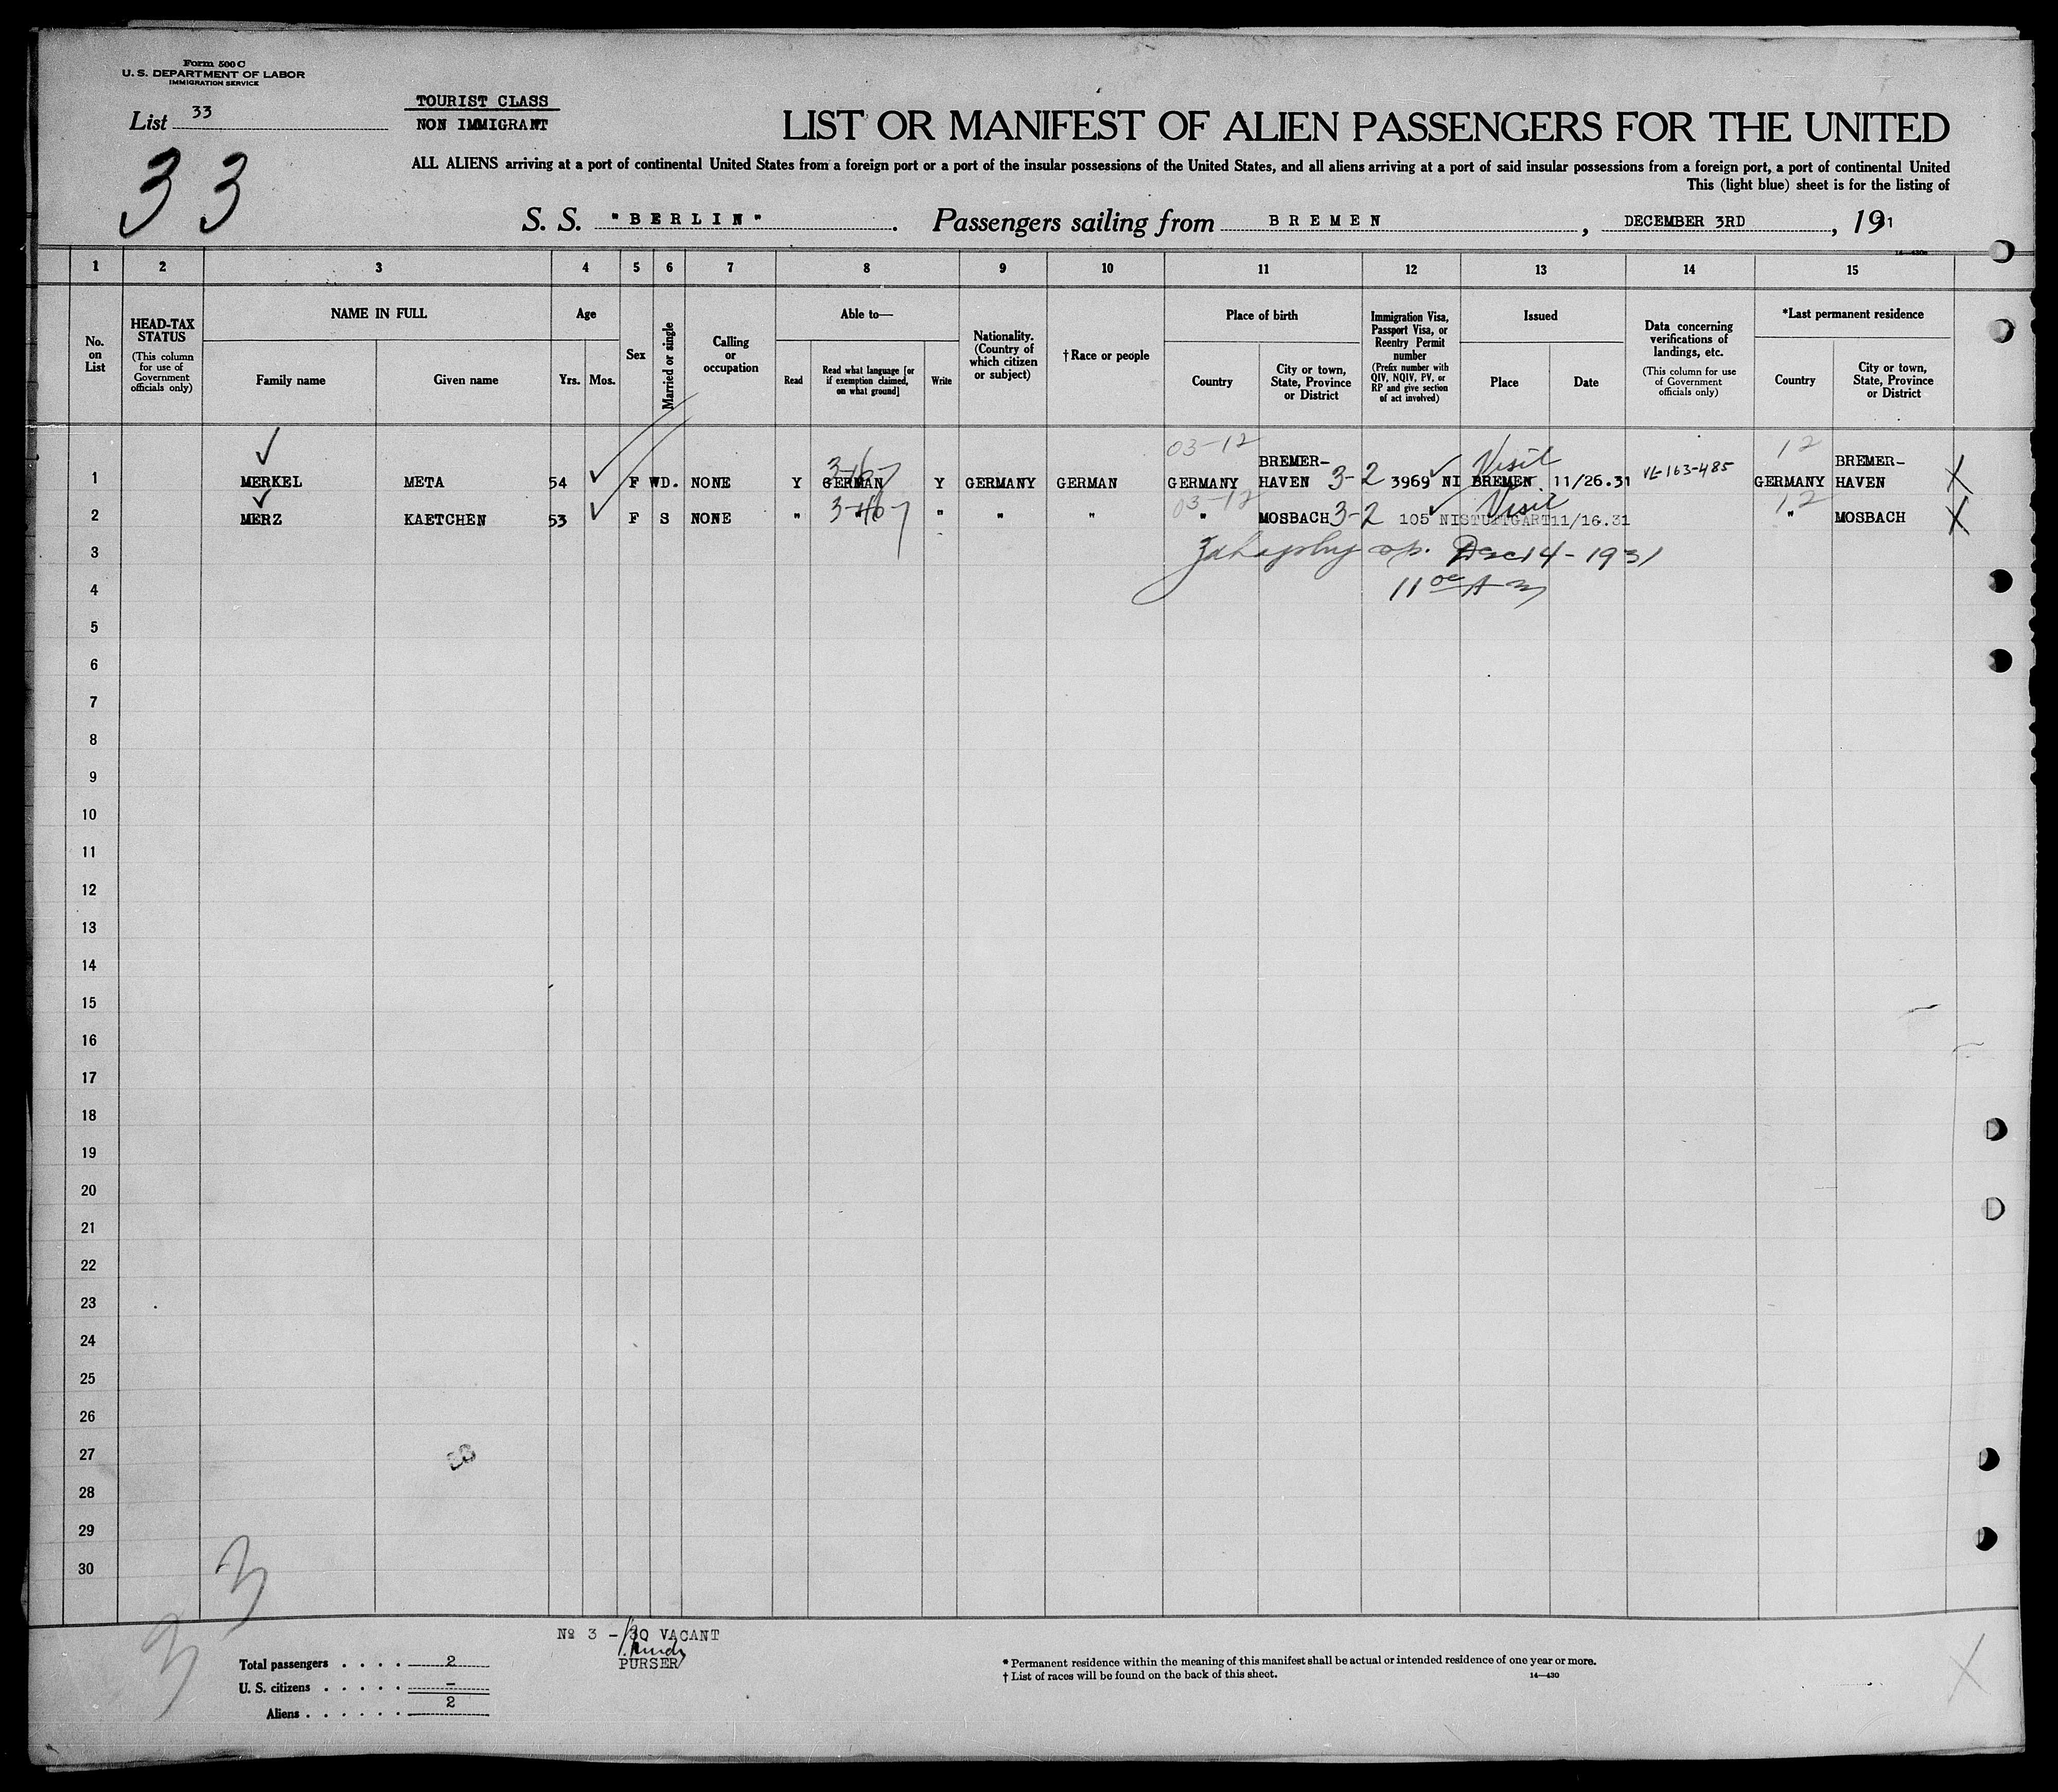 Form 500 C
U. S. DEPARTMENT OF LABOR
IMMIGRATION SERVICE
List 33
TOURIST CLASS
NON IMMIGRANT
33
LIST OR MANIFEST OF ALIEN PASSENGERS FOR THE UNITED
ALL ALIENS arriving at a port of continental United States from a foreign port or a port of the insular possessions of the United States, and all aliens arriving at a port of said insular possessions from a foreign port, a port of continental United
This (light blue) sheet is for the listing of
S. S. "BERLIN". Passengers sailing from BREMEN, DECEMBER 3RD, 1931
14—430a
1 2 3 4 5 6 7 8 9 10 11 12 13 14 15
No. on List
HEAD-TAX STATUS (This column for use of Government officials only)
NAME IN FULL
Family name Given name
Age
Yrs. Mos.
Sex
Married or single
Calling or occupation
Able to—
Read Read what language [or if exemption claimed, on what ground] Write
Nationality. (Country of which citizen or subject)
†Race or people
Place of birth
Country City or town, State, Province or District
Immigration Visa, Passport Visa, or Reentry Permit number (Prefix number with QIV, NQIV, PV, or RP and give section of act involved)
Issued
Place Date
Data concerning verifications of landings, etc. (This column for use of Government officials only)
*Last permanent residence
Country City or town, State, Province or District
03-12 Visit 12
1 MERKEL META 54 F WD. NONE Y GERMAN Y GERMANY GERMAN GERMANY BREMER-HAVEN 3-2 3969 NI BREMEN 11/26.31 VL-163-485 GERMANY BREMER-HAVEN X
03-12 Visit 12
2 MERZ KAETCHEN 53 F S NONE " " " " " " MOSBACH 3-2 105 NI STUTTGART 11/16.31 " MOSBACH X
3 Dec 14-1931
4 11 00 A M
5
6
7
8
9
10
11
12
13
14
15
16
17
18
19
20
21
22
23
24
25
26
27
28
29
30
33
№ 3 - 30 VACANT
PURSER
Total passengers . . . . 2
U. S. citizens . . . . . -
Aliens . . . . . . 2
* Permanent residence within the meaning of this manifest shall be actual or intended residence of one year or more.
† List of races will be found on the back of this sheet. 14—430
X